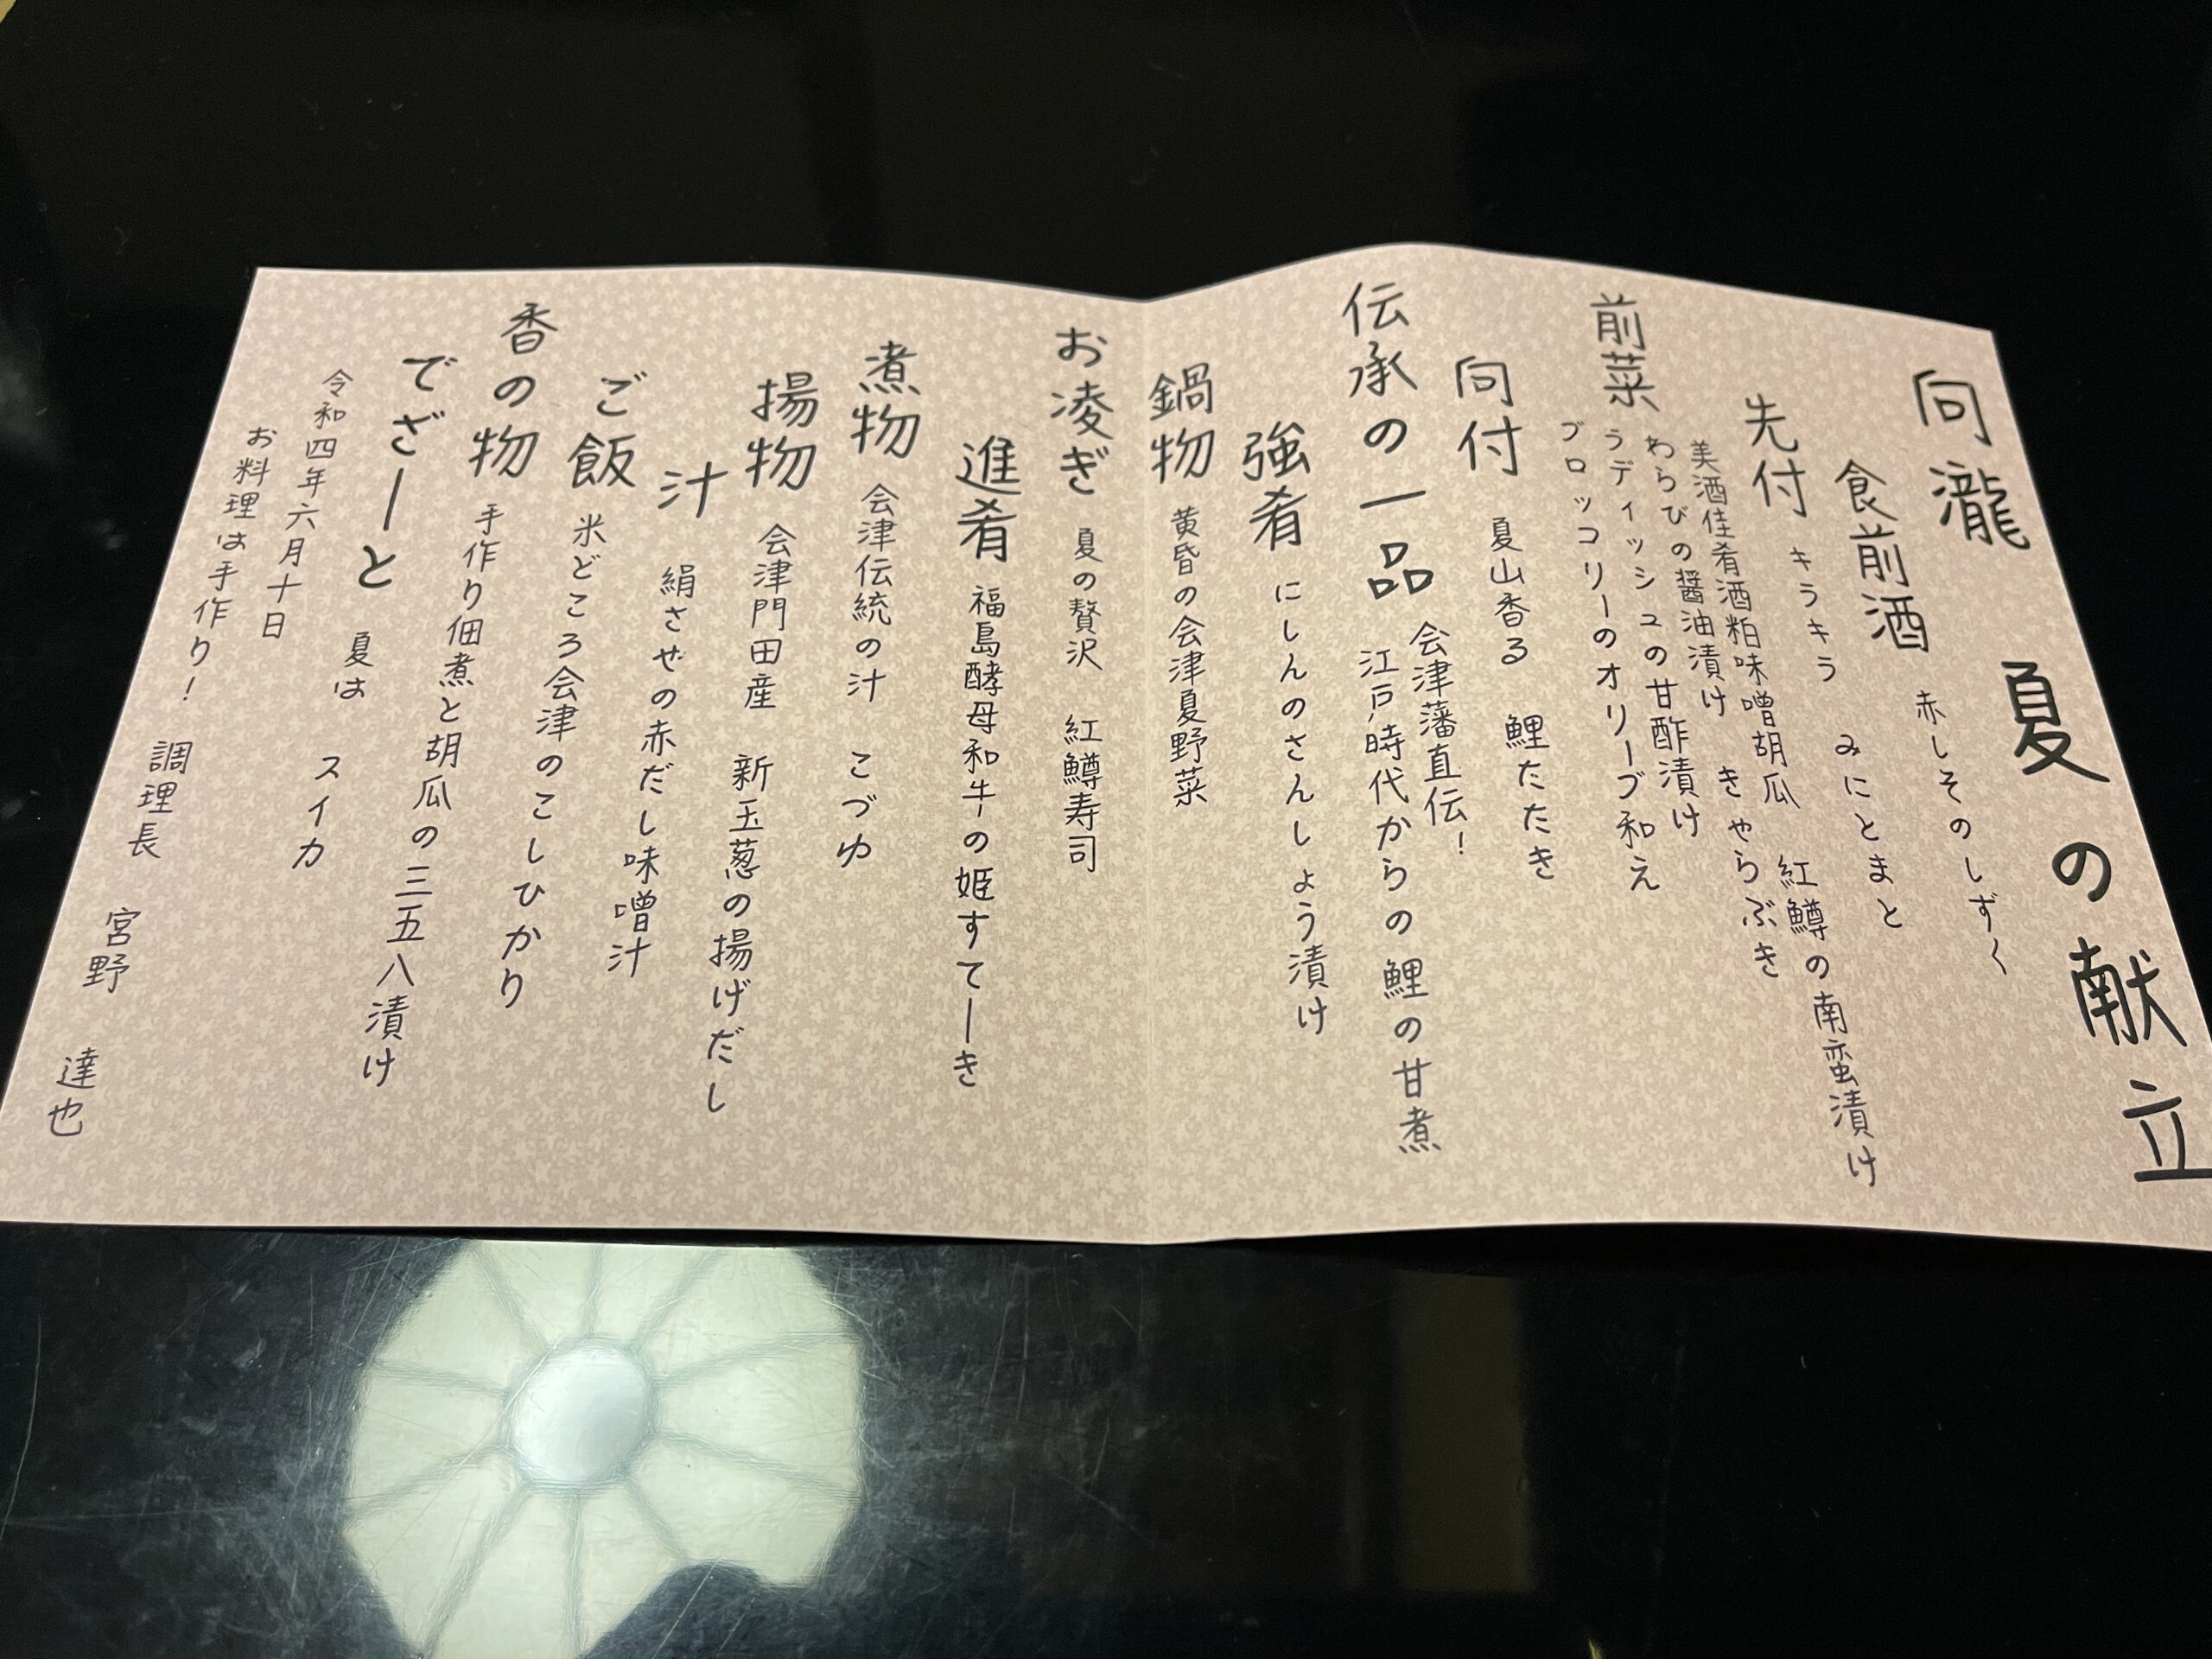 向瀧　夏の献立
食前酒　赤しそのしずく
先付　キラキラ　みにとまと
美酒佳肴酒粕味噌胡瓜　紅鱒の南蛮漬け
前菜　わらびの醤油漬け　きゃらぶき
うディッシュの甘酢漬け
ブロッコリーのオリーブ和え
向付　夏山香る　鯉たたき
伝承の一品　会津藩直伝！
江戸時代からの鯉の甘煮
強肴　にしんのさんしょう漬け
鍋物　黄昏の会津夏野菜
お凌ぎ　夏の贅沢　紅鱒寿司
進肴　福島酵母和牛の姫すてーき
煮物　会津伝統の汁　こづゆ
揚物　会津門田産　新玉葱の揚げだし
汁　絹さやの赤だし味噌汁
ご飯　米どころ会津のこしひかり
香の物　手作り佃煮と胡瓜の三五八漬け
でざーと　夏は　スイカ
令和四年六月十日
お料理は手作り！　調理長　宮野　達也